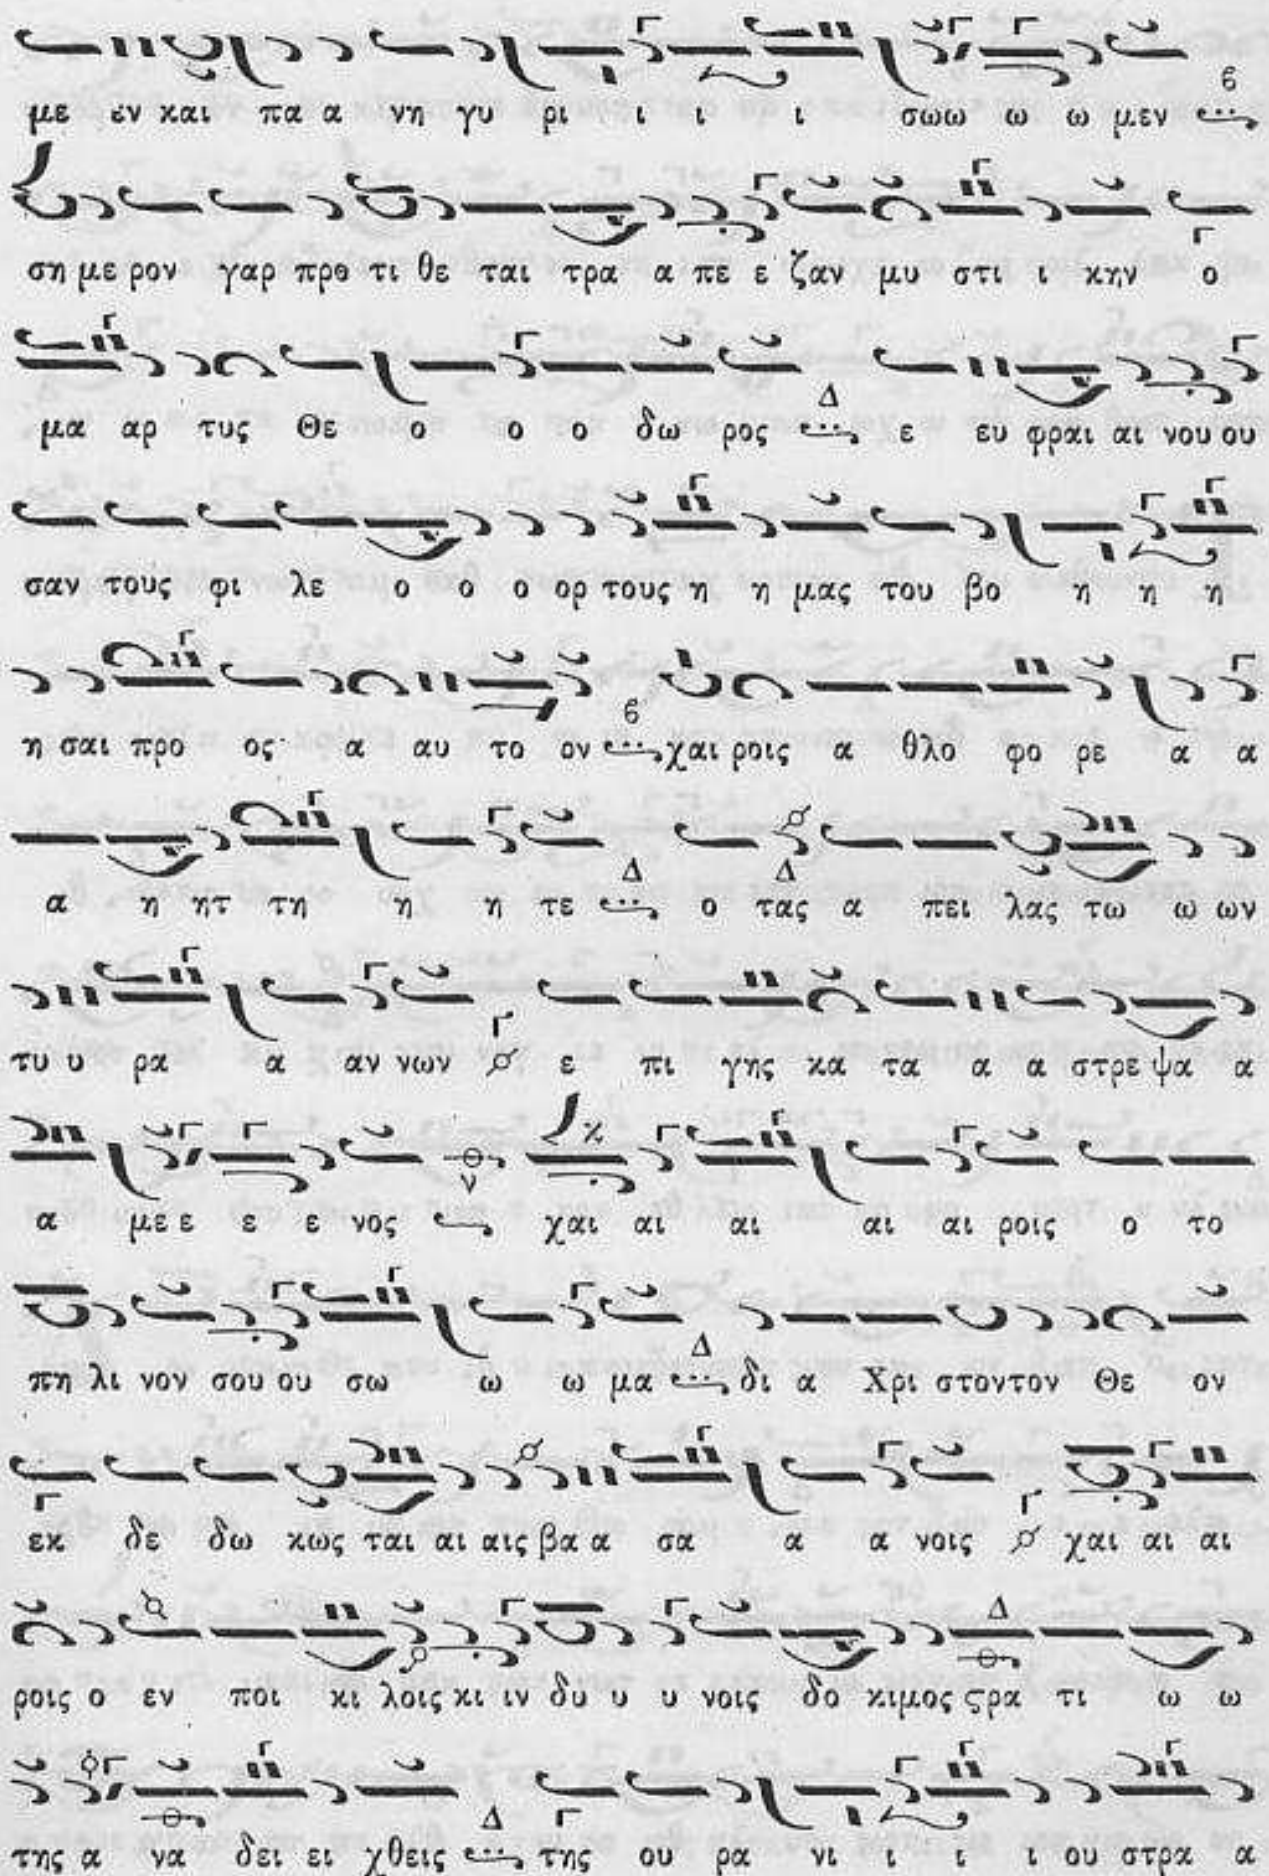 με εν και πα α νη γυ ρι ι ι ι σωω ω ω μεν
ση με ρον γαρ προ τι θε ται τρα α πε ε ζαν μυ στι ι κην ο
μα αρ τυς Θε ο ο ο δω ρος ε ευ φραι αι νου ου
σαν τους φι λε ο ο ο ορ τους η η μας του βο η η η
η σαι προ ος α αυ το ον χαι ροις α θλο φο ρε α α
α η ητ τη η η τε ο τας α πει λας τω ω ων
τυ υ ρα α αν νων ε πι γης κα τα α α στρε ψα α
α με ε ε ε νος χαι αι αι αι αι ροις ο το
πη λι νον σου ου σω ω ω μα δι α Χρι στον τον Θε ον
εκ δε δω κως ται αι αις βα α σα α α νοις χαι αι αι
ροις ο εν ποι κι λοις κι ιν δυ υ υ νοις δο κιμος ϛρα τι ω ω
της α να δει ει χθεις της ου ρα νι ι ι ι ου στρα α